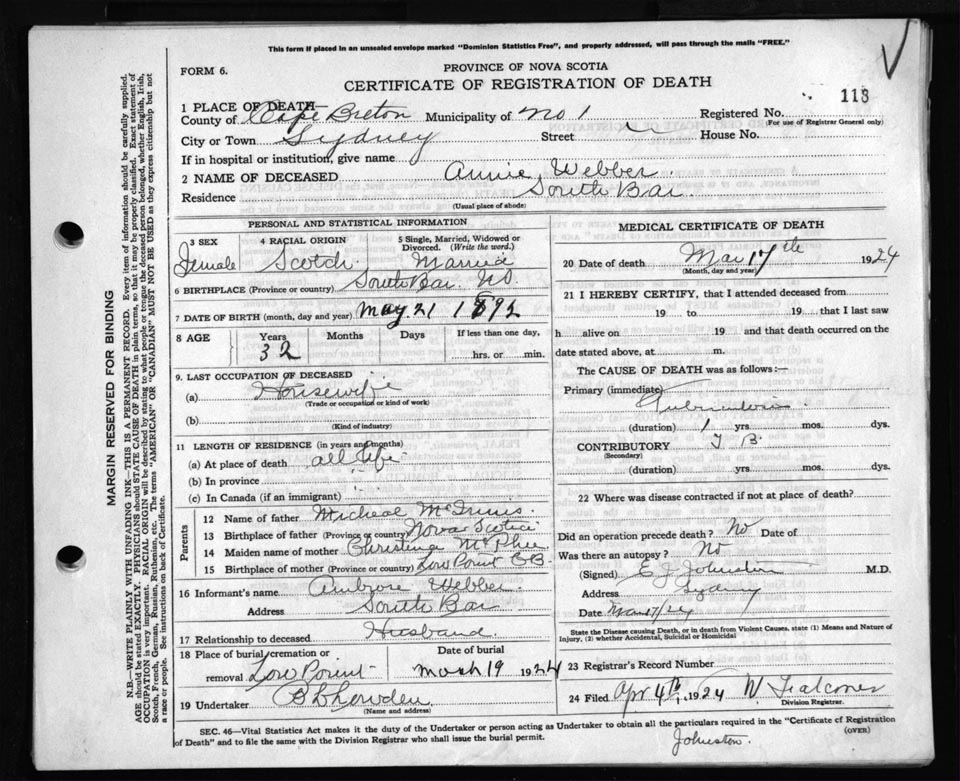 This form if placed in an unsealed envelope marked "Dominion Statistics Free", and properly addressed, will pass through the mails "FREE."
FORM 6.
PROVINCE OF NOVA SCOTIA
CERTIFICATE OF REGISTRATION OF DEATH
113
1 PLACE OF DEATH
County of Cape Breton Municipality of No 1 Registered No.
(For use of Registrar General only)
City or Town Sydney Street House No.
If in hospital or institution, give name
2 NAME OF DECEASED Annie Webber
Residence South Bar
(Usual place of abode)
PERSONAL AND STATISTICAL INFORMATION
3 SEX 4 RACIAL ORIGIN 5 Single, Married, Widowed or Divorced. (Write the word.)
Female Scotch Married
6 BIRTHPLACE (Province or country) South Bar N.S.
7 DATE OF BIRTH (month, day and year) May 21 1892
8 AGE Years Months Days If less than one day,
32 hrs. or min.
9. LAST OCCUPATION OF DECEASED
(a) Housewife
(Trade or occupation or kind of work)
(b)
(Kind of industry)
11 LENGTH OF RESIDENCE (in years and months)
(a) At place of death all life
(b) In province
(c) In Canada (if an immigrant)
Parents
12 Name of father Micheal McInnis
13 Birthplace of father (Province or country) Nova Scotia
14 Maiden name of mother Christina McPhee
15 Birthplace of mother (Province or country) Low Point CB
16 Informant's name Ambrose Webber
Address South Bar
17 Relationship to deceased Husband
18 Place of burial, cremation or removal Low Point
Date of burial March 19 1924
19 Undertaker
(Name and address)
MEDICAL CERTIFICATE OF DEATH
20 Date of death Mar 17th 1924
(Month, day and year)
21 I HEREBY CERTIFY, that I attended deceased from
19 to 19 that I last saw
h alive on 19 and that death occurred on the
date stated above, at m.
The CAUSE OF DEATH was as follows:—
Primary (immediate)
Tuberculosis
(duration) 1 yrs. mos. dys.
CONTRIBUTORY T B
(Secondary)
(duration) yrs. mos. dys.
22 Where was disease contracted if not at place of death?
Did an operation precede death? No Date of
Was there an autopsy? No
(Signed) E J Johnston M.D.
Address Sydney
Date Mar 17/24
State the Disease causing Death, or in death from Violent Causes, state (1) Means and Nature of Injury, (2) whether Accidental, Suicidal or Homicidal
23 Registrar's Record Number
24 Filed Apr 4th, 1924 W Falconer
Division Registrar.
SEC. 46—Vital Statistics Act makes it the duty of the Undertaker or person acting as Undertaker to obtain all the particulars required in the "Certificate of Registration
of Death" and to file the same with the Division Registrar who shall issue the burial permit.
(OVER)
Johnston.
MARGIN RESERVED FOR BINDING
N.B.—WRITE PLAINLY WITH UNFADING INK—THIS IS A PERMANENT RECORD. Every item of information should be carefully supplied.
AGE should be stated EXACTLY. PHYSICIANS should STATE CAUSE OF DEATH in plain terms, so that it may be properly classified. Exact statement of
OCCUPATION is very important. RACIAL ORIGIN will be described by stating to what people or tongue the deceased person belonged, whether English, Irish,
Scotch, French, German, Russian, Ruthenian, etc. The terms "AMERICAN" OR "CANADIAN" MUST NOT BE USED as they express citizenship but not
a race or people. See instructions on back of Certificate.